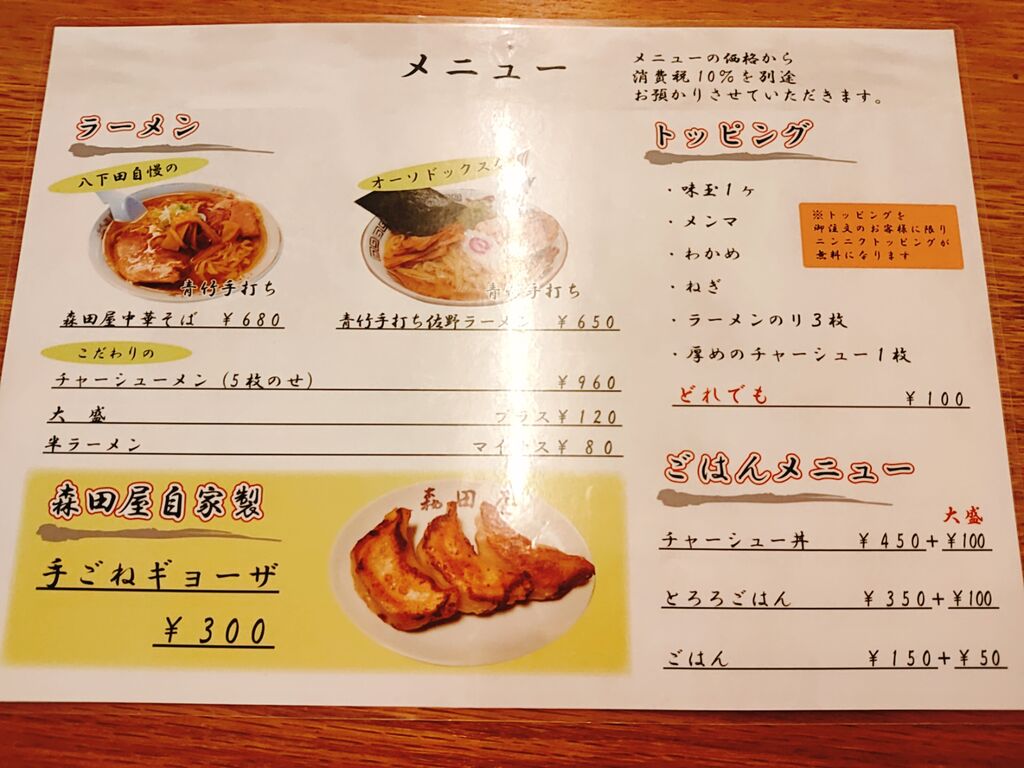 メニュー
メニューの価格から
消費税10%を別途
お預かりさせていただきます。
ラーメン
八下田自慢の
青竹手打ち
森田屋中華そば ¥680
オーソドックスな
青竹手打ち
青竹手打ち佐野ラーメン ¥650
こだわりの
チャーシューメン(5枚のせ) ¥960
大 盛 プラス¥120
半ラーメン マイナス¥ 80
森田屋自家製
手ごねギョーザ
¥300
森田屋
トッピング
・味玉1ヶ
・メンマ
・わかめ
・ねぎ
・ラーメンのり3枚
・厚めのチャーシュー1枚
どれでも ¥100
※トッピングを
御注文のお客様に限り
ニンニクトッピングが
無料になります
ごはんメニュー
大盛
チャーシュー丼 ¥450+¥100
とろろごはん ¥350+¥100
ごはん ¥150+¥50